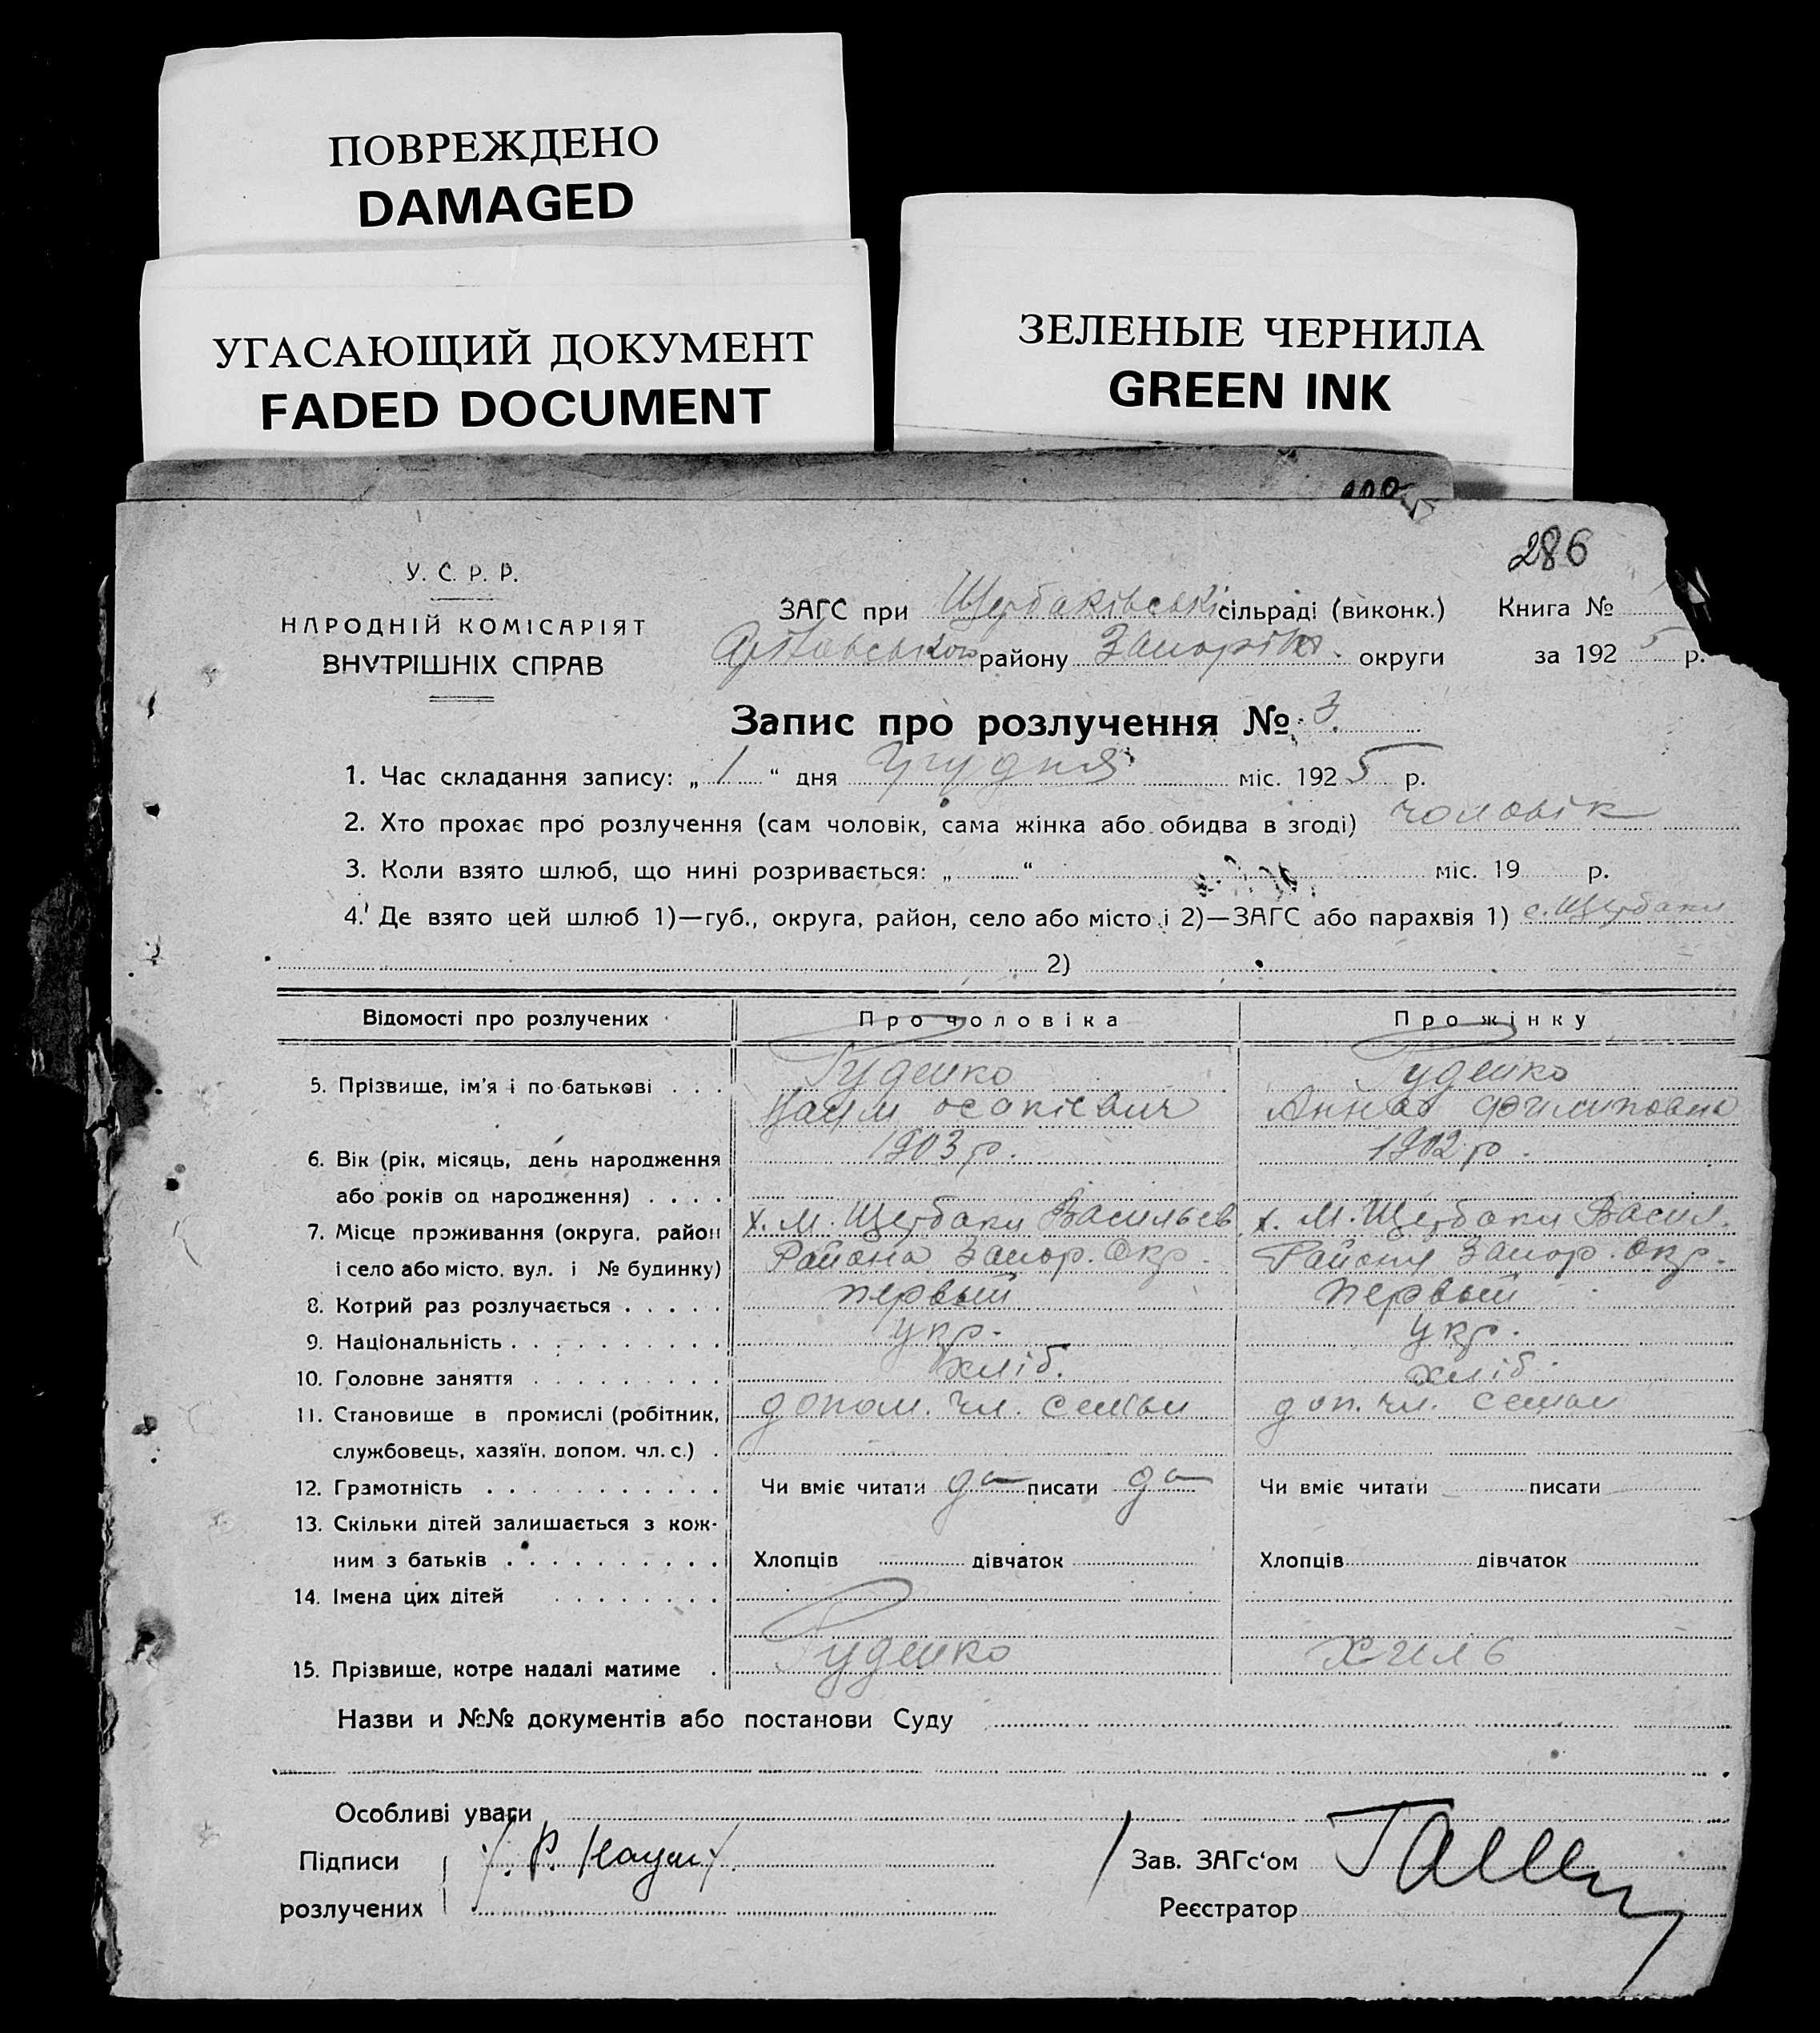 ПОВРЕЖДЕНО
DAMAGED
УГАСАЮЩИЙ ДОКУМЕНТ
FADED DOCUMENT
ЗЕЛЕНЫЕ ЧЕРНИЛА
GREEN INK
286
У. С. Р. Р.
НАРОДНІЙ КОМІСАРІЯТ
ВНУТРІШНІХ СПРАВ
ЗАГС при Щербаківські сільраді (виконк.) Книга №
району Запоріж. округи за 192 5 р.
Запис про розлучення № 3
1. Час складання запису: „ 1 “ дня грудня міс. 192 5 р.
2. Хто прохає про розлучення (сам чоловік, сама жінка або обидва в згоді) чоловік
3. Коли взято шлюб, що нині розривається: „ “ міс. 19 р.
4. Де взято цей шлюб 1)—губ., округа, район, село або місто і 2)—ЗАГС або парахвія 1) с. Щербаки
2)
Відомості про розлучених Про чоловіка Про жінку
5. Прізвище, ім'я і по батькові . . . Руденко Руденко
Наум Анна Филиповна
6. Вік (рік, місяць, день народження 1903 р. 1902 р.
або років од народження) . . . .
7. Місце проживання (округа, район х. М. Щербаки Васильев х. М. Щербаки Васил.
і село або місто, вул. і № будинку) Района Запор. Окр. Района Запор. Окр.
8. Котрий раз розлучається . . . . . первый первый
9. Національність . . . . . . . . . . укр. укр.
10. Головне заняття . . . . . . . . . хліб. хліб.
11. Становище в промислі (робітник, допом. чл. семьи доп. чл. семьи
службовець, хазяїн, допом. чл. с.) .
12. Грамотність . . . . . . . . . . . Чи вміє читати да писати да Чи вміє читати писати
13. Скільки дітей залишається з кож-
ним з батьків . . . . . . . . . . Хлопців дівчаток Хлопців дівчаток
14. Імена цих дітей . . . . . . . .
15. Прізвище, котре надалі матиме . Руденко Хиль
Назви и №№ документів або постанови Суду
Особливі уваги
Підписи Р. Наум Зав. ЗАГс'ом
розлучених Реєстратор